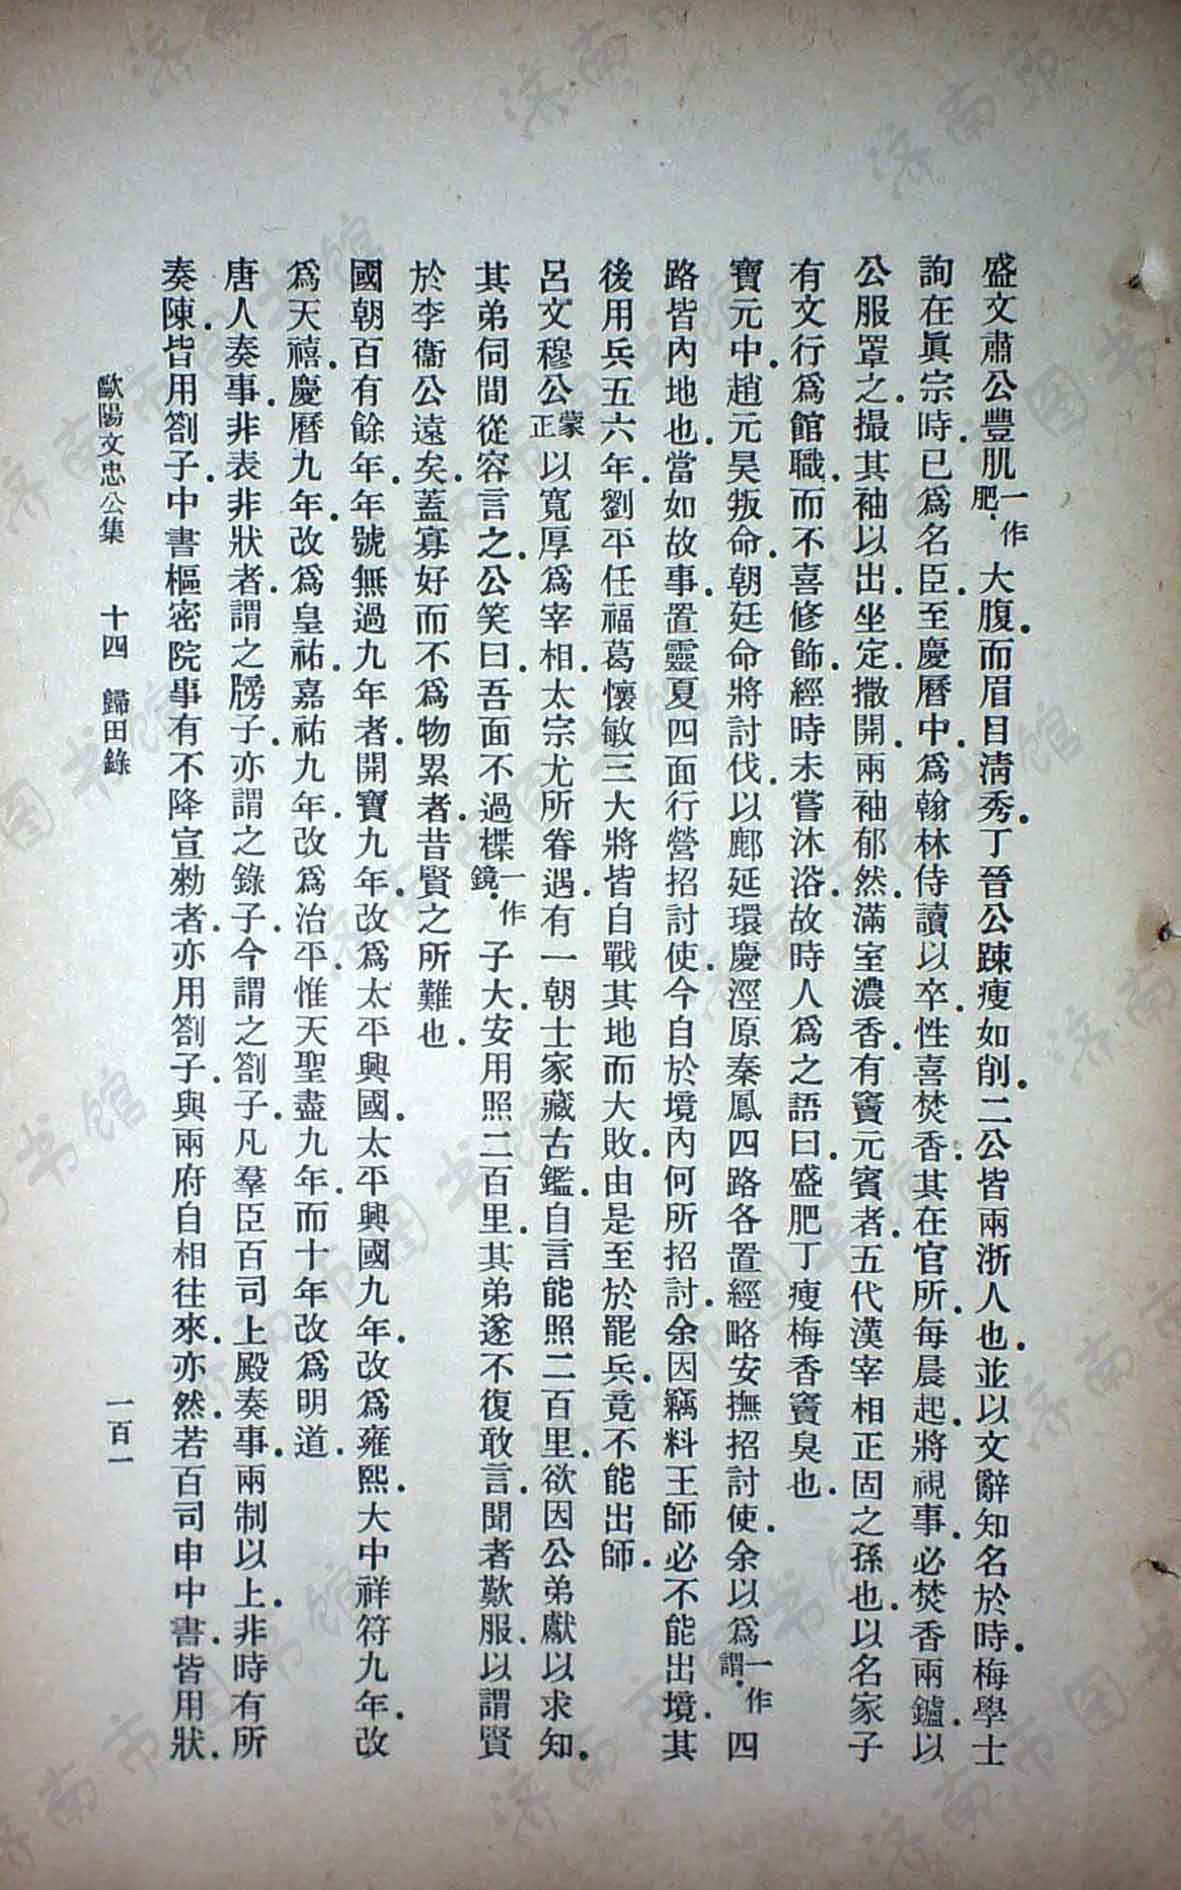 盛文肅公豐肌一作肥.大腹.而眉目清秀.丁晉公踈瘦如削.二公皆兩浙人也.並以文辭知名於時.梅學士
詢在眞宗時.已爲名臣.至慶曆中.爲翰林侍讀以卒.性喜焚香.其在官所.每晨起.將視事.必焚香兩鑪.以
公服罩之.撮其袖以出.坐定.撒開兩袖.郁然滿室濃香.有竇元賓者.五代漢宰相正固之孫也.以名家子
有文行爲館職.而不喜修飾.經時未嘗沐浴.故時人爲之語曰.盛肥丁瘦梅香竇臭也.
寶元中.趙元昊叛命.朝廷命將討伐.以鄜延環慶涇原秦鳳四路各置經略安撫招討使.余以爲一作謂.四
路皆內地也.當如故事.置靈夏四面行營招討使.今自於境內何所招討.余因竊料王師必不能出境.其
後用兵五六年.劉平任福葛懷敏三大將皆自戰其地而大敗.由是至於罷兵.竟不能出師.
呂文穆公蒙正以寬厚爲宰相.太宗尤所眷遇.有一朝士家藏古鑑.自言能照二百里.欲因公弟獻以求知.
其弟伺間從容言之.公笑曰.吾面不過楪一作鏡.子大.安用照二百里.其弟遂不復敢言.聞者歎服.以謂賢
於李衞公遠矣.蓋寡好而不爲物累者.昔賢之所難也.
國朝百有餘年.年號無過九年者.開寶九年.改爲太平興國.太平興國九年.改爲雍熙.大中祥符九年.改
爲天禧.慶曆九年.改爲皇祐.嘉祐九年.改爲治平.惟天聖盡九年.而十年改爲明道.
唐人奏事.非表非狀者.謂之牓子.亦謂之錄子.今謂之劄子.凡羣臣百司上殿奏事.兩制以上.非時有所
奏陳.皆用劄子.中書樞密院事有不降宣勑者.亦用劄子.與兩府自相往來.亦然.若百司申中書.皆用狀.
歐陽文忠公集 十四 歸田錄 一百一
济南市图书馆